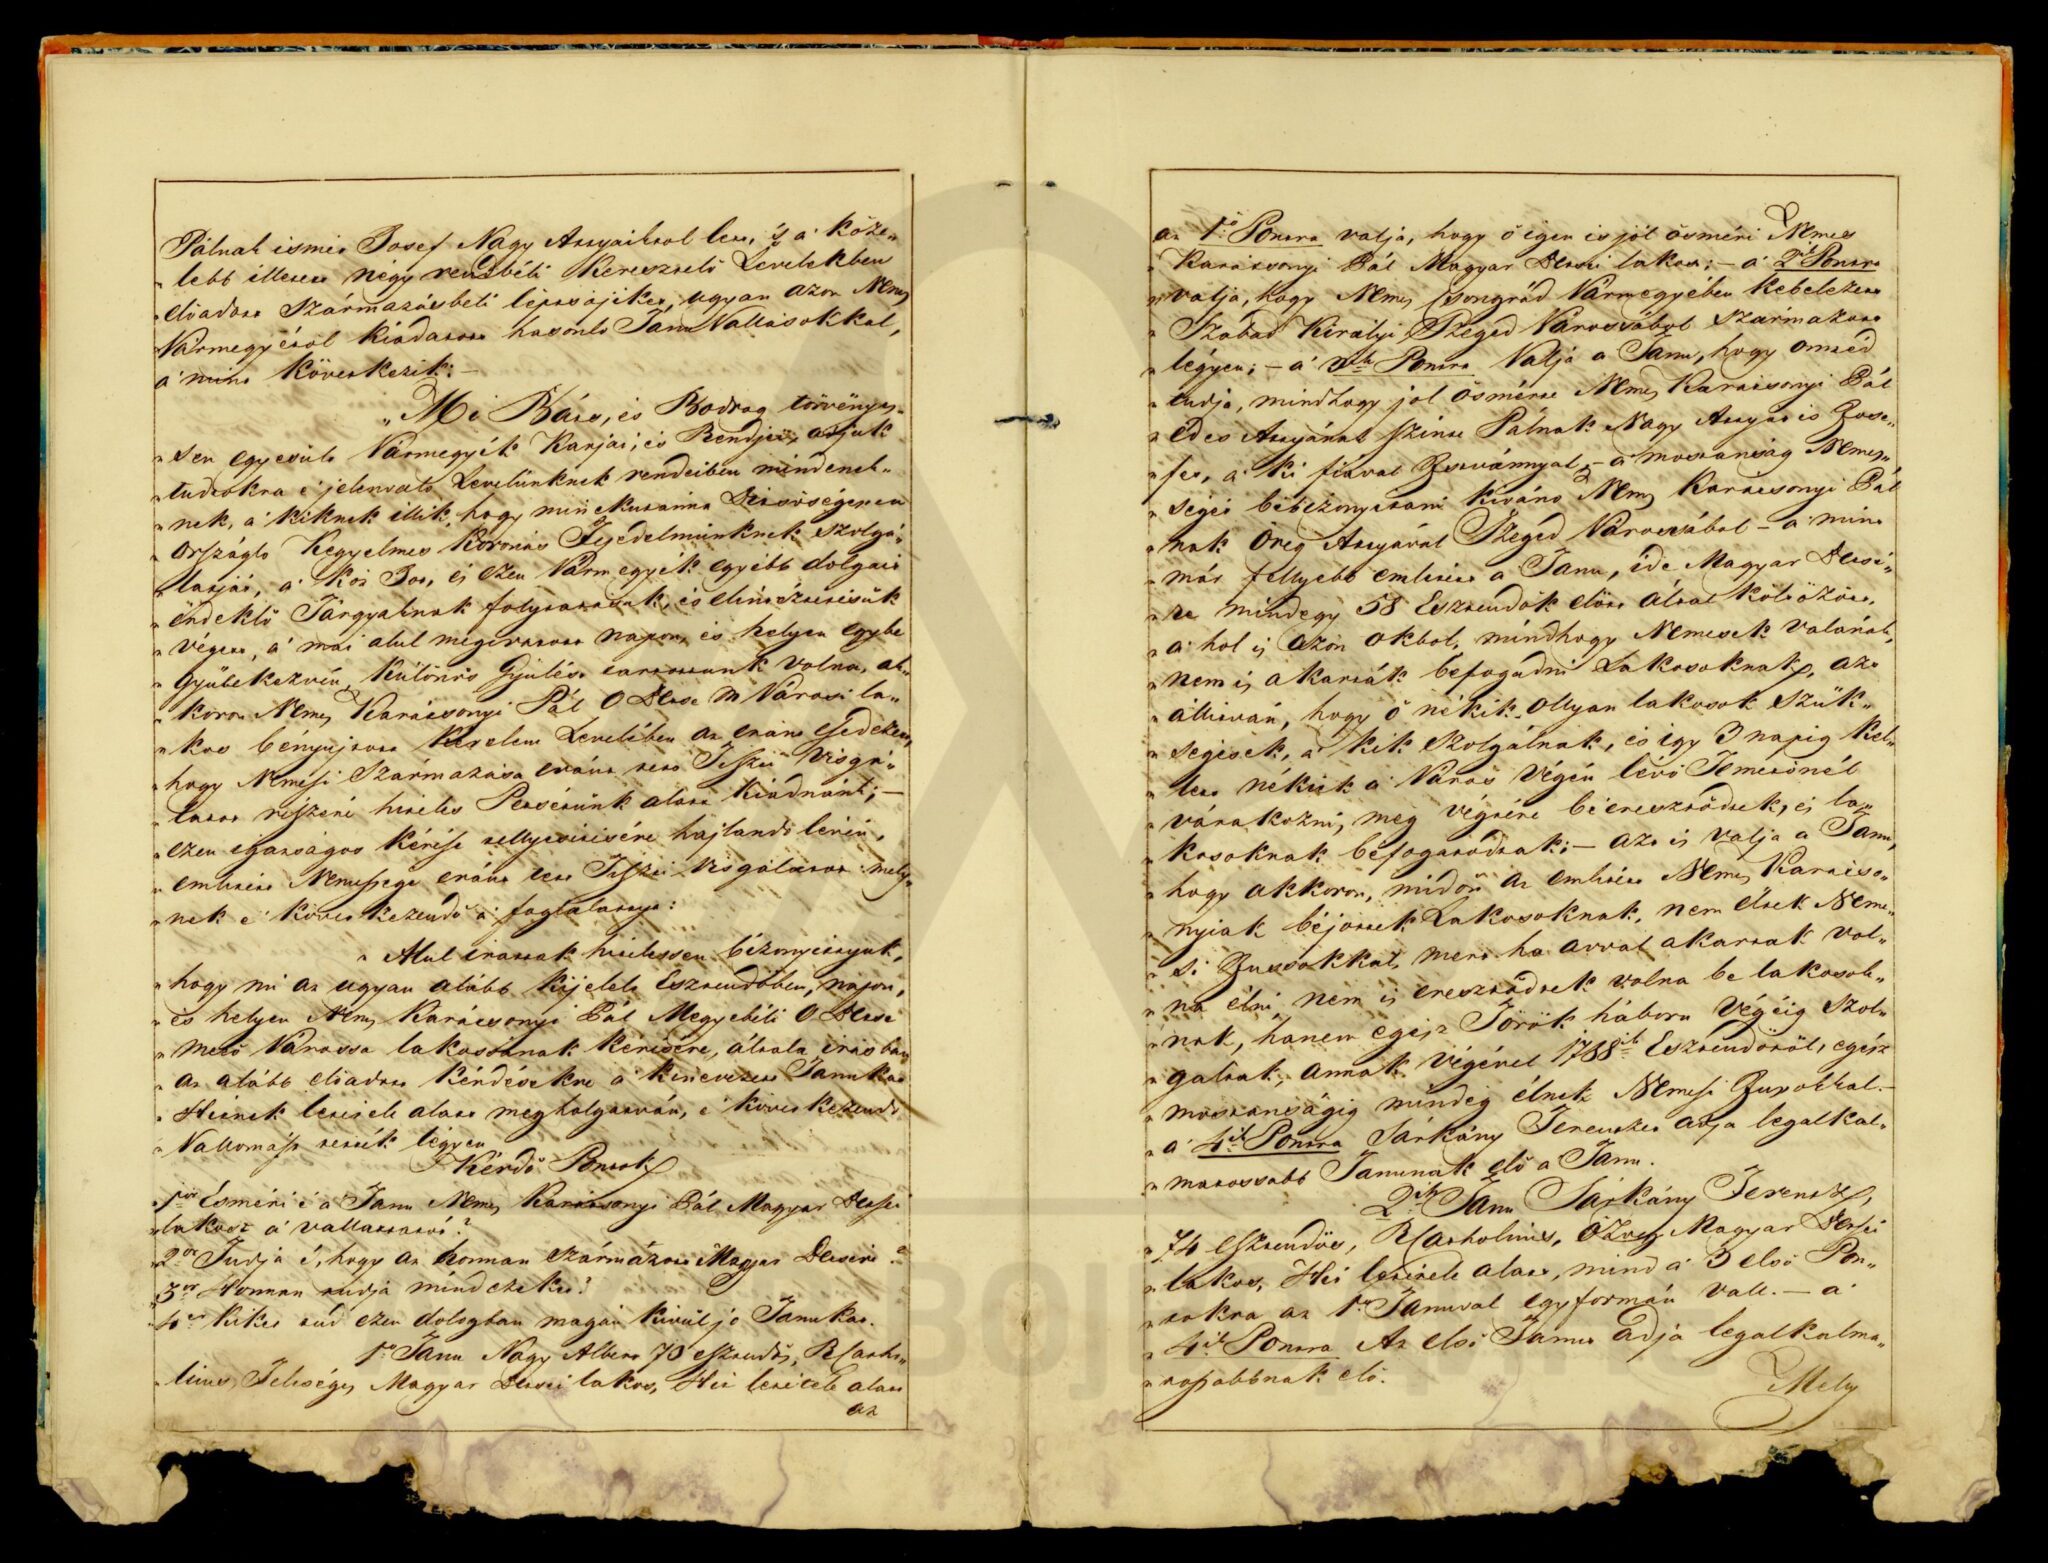 Pálnak ismét Josef Nagy Attyaitol lett, és a' köze„
„lebb illetett négy rendbéli Keresztelö Levelekben
„elöadott Származásbéli lépcsöjiket, ugyan azon Nemes
„Vármegyétöl kiadatott hasonló Tanu Vallásokkal,
a' mint következik: –
„Mi Báts, és Bodrog törvényes„
„sen egyesült Vármegyék Karjai, és Rendjei, adjuk
„tudtokra e' jelenvaló Levelünknek rendeiben mindenek„
„nek, a' kiknek illik, hogy minekutánna Ditsöségesen
„Országló Kegyelmes Koronás Fejedelmünknek Szolgá„
„latját, a' köz Jót, és ezen Vármegyék egyébb dolgait
„érdeklö Tárgyaknak folytatásuk, és elintézésük
„végett, a' mai alul megirtatott napon, és helyen egybe
„Gyülekezvén, Különös Gyülést tartottunk volna, ak„
„koron Nemes Karátsonyi Pál O Betse M Városi la„
„kos bényujtott Kérelem Levelében az eránt esedezett,
„hogy Nemesi Származása eránt tett Tiszti Visgá„
„latot részére hiteles Petsétünk alatt kiadnánk; –
„ezen igazságos kérése tellyesitésére hajlandó lévén,
„emlitett Nemessége eránt tett Tiszti Visgálatot: mely„
„nek e' következendö a' foglalattya:
„Alul irottak hitelessen bizonyittyuk,
„hogy mi az ugyan alább kijelelt Esztendöben, napon,
„és helyen Nemes Karátsonyi Pál Megyebéli O Betse
„Mezö Várossa lakossának kérésére, általa irásban
„az alább eladott kérdésekre a' kinevezett Tanukat
„Hitnek letétele alatt meghalgatván, e' következendö
„Vallomást tették légyen
Kérdö Pontok
„1ör Esméri é a' Tanu Nemes Karátsonyi Pál Magyar Betsei
„lakost a' vallattatót?
„2or Tudja é, hogy az honnan származott Magyar Betsére?
„3or Honnan tudja mind ezeket?
„4er Kiket tud ezen dologban magán kivül jó Tanukat.
1ö Tanu Nagy Albert 70 esztendös, R. Catho„
„licus, Feleséges, Magyar Betsei lakos, Hit letétele alatt
az
az 1ö Pontra valja, hogy ö igen is jól ösméri Nemes
„Karátsonyi Pál Magyar Betsei lakost; – a' 2ik Pontra
„valja, hogy Nemes Csongrád Vármegyében kebelezett
„Szabad Királyi Szeged Várossából származott
„légyen; – a' 3ik Pontra Vallja a Tanu, hogy onnéd
„tudja, mindhogy jól ösmérte Nemes Karátsonyi Pál
„édes Attyának szinte Pálnak Nagy Attyát is Jose„
„fet, a' ki fiával Istvánnyal, – a' mostanság Nemes„
„ségét bébizonyitani kivánó Nemes Karátsonyi Pál
„nak Öreg Attyával Szeged Várossábol – a' mint
„már fellyebb emlitett a Tanu, ide Magyar Betsé„
„re mindegy 58 Esztendök elött által költözött,
„a' hol is azon okbol, mindhogy Nemesek valának,
„nem is akarták béfogadni Lakosoknak, azt
„állitván, hogy ö nékik ollyan lakosok szük„
„ségesek, a' kik szolgálnak, és igy 3 napig kel„
„lett nékiek a' Város végén lévö Temetönél
„várakozni, meg végtére béeresztödtek, és la„
„kosoknak béfogatódtak; – azt is valja a Tanu,
„hogy akkoron, midön az emlitett Nemes Karátso„
„nyiak béjöttek Lakosoknak, nem éltek Neme„
„si Jussokkal, mert ha avval akartak vol„
„na élni, nem is eresztödtek volna be lakosok„
„nak, hanem egész Török háboru Végéig szol„
„gáltak, annak végével 1788ik Esztendötöl, egész
„mostanságig mindég élnek Nemesi Jusokkal. –
„a' 4ik Pontra Sárkány Ferentzet adja legalkal„
„matossabb Tanunak elö a' Tanu.
2ik Tanu Sárkány Ferentz,
„74 esztendös, R. Catholicus, özvegy Magyar Betsei
„lakos, Hit letétele alatt, mind a' 3 elsö Pon„
„tokra az 1ö Tanuval egyformán vall. – a'
„4ik Pontra Az elsö Tanut adja legalkalma„
„tossabbnak elö.
Mely